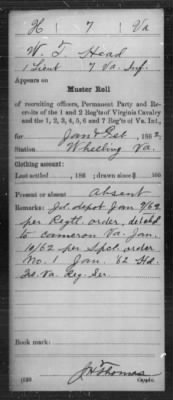 H 7 Va
W. T. Head
1 Lieut 7 Va. Inf.
Appears on
Muster Roll
of recruiting officers, Permanent Party and Re-
cruits of the 1 and 2 Reg'ts of Virginia Cavalry
and the 1, 2, 3, 4, 5, 6 and 7 Reg'ts of Va. Inf.,
for Jan & Feb, 1862.
Station Wheeling Va.
Clothing account:
Last settled, 186 ; drawn since $ 100
Present or absent Absent
Remarks: Jd. depot Jan 7/62
per Regtl order, detchd
to Cameron Va. Jan.
10/62 per Spcl. order
No. 1 Jan. '62 Hd.
Qs. Va. Reg. Ser.
Book mark:
J H Thomas
Copyist.